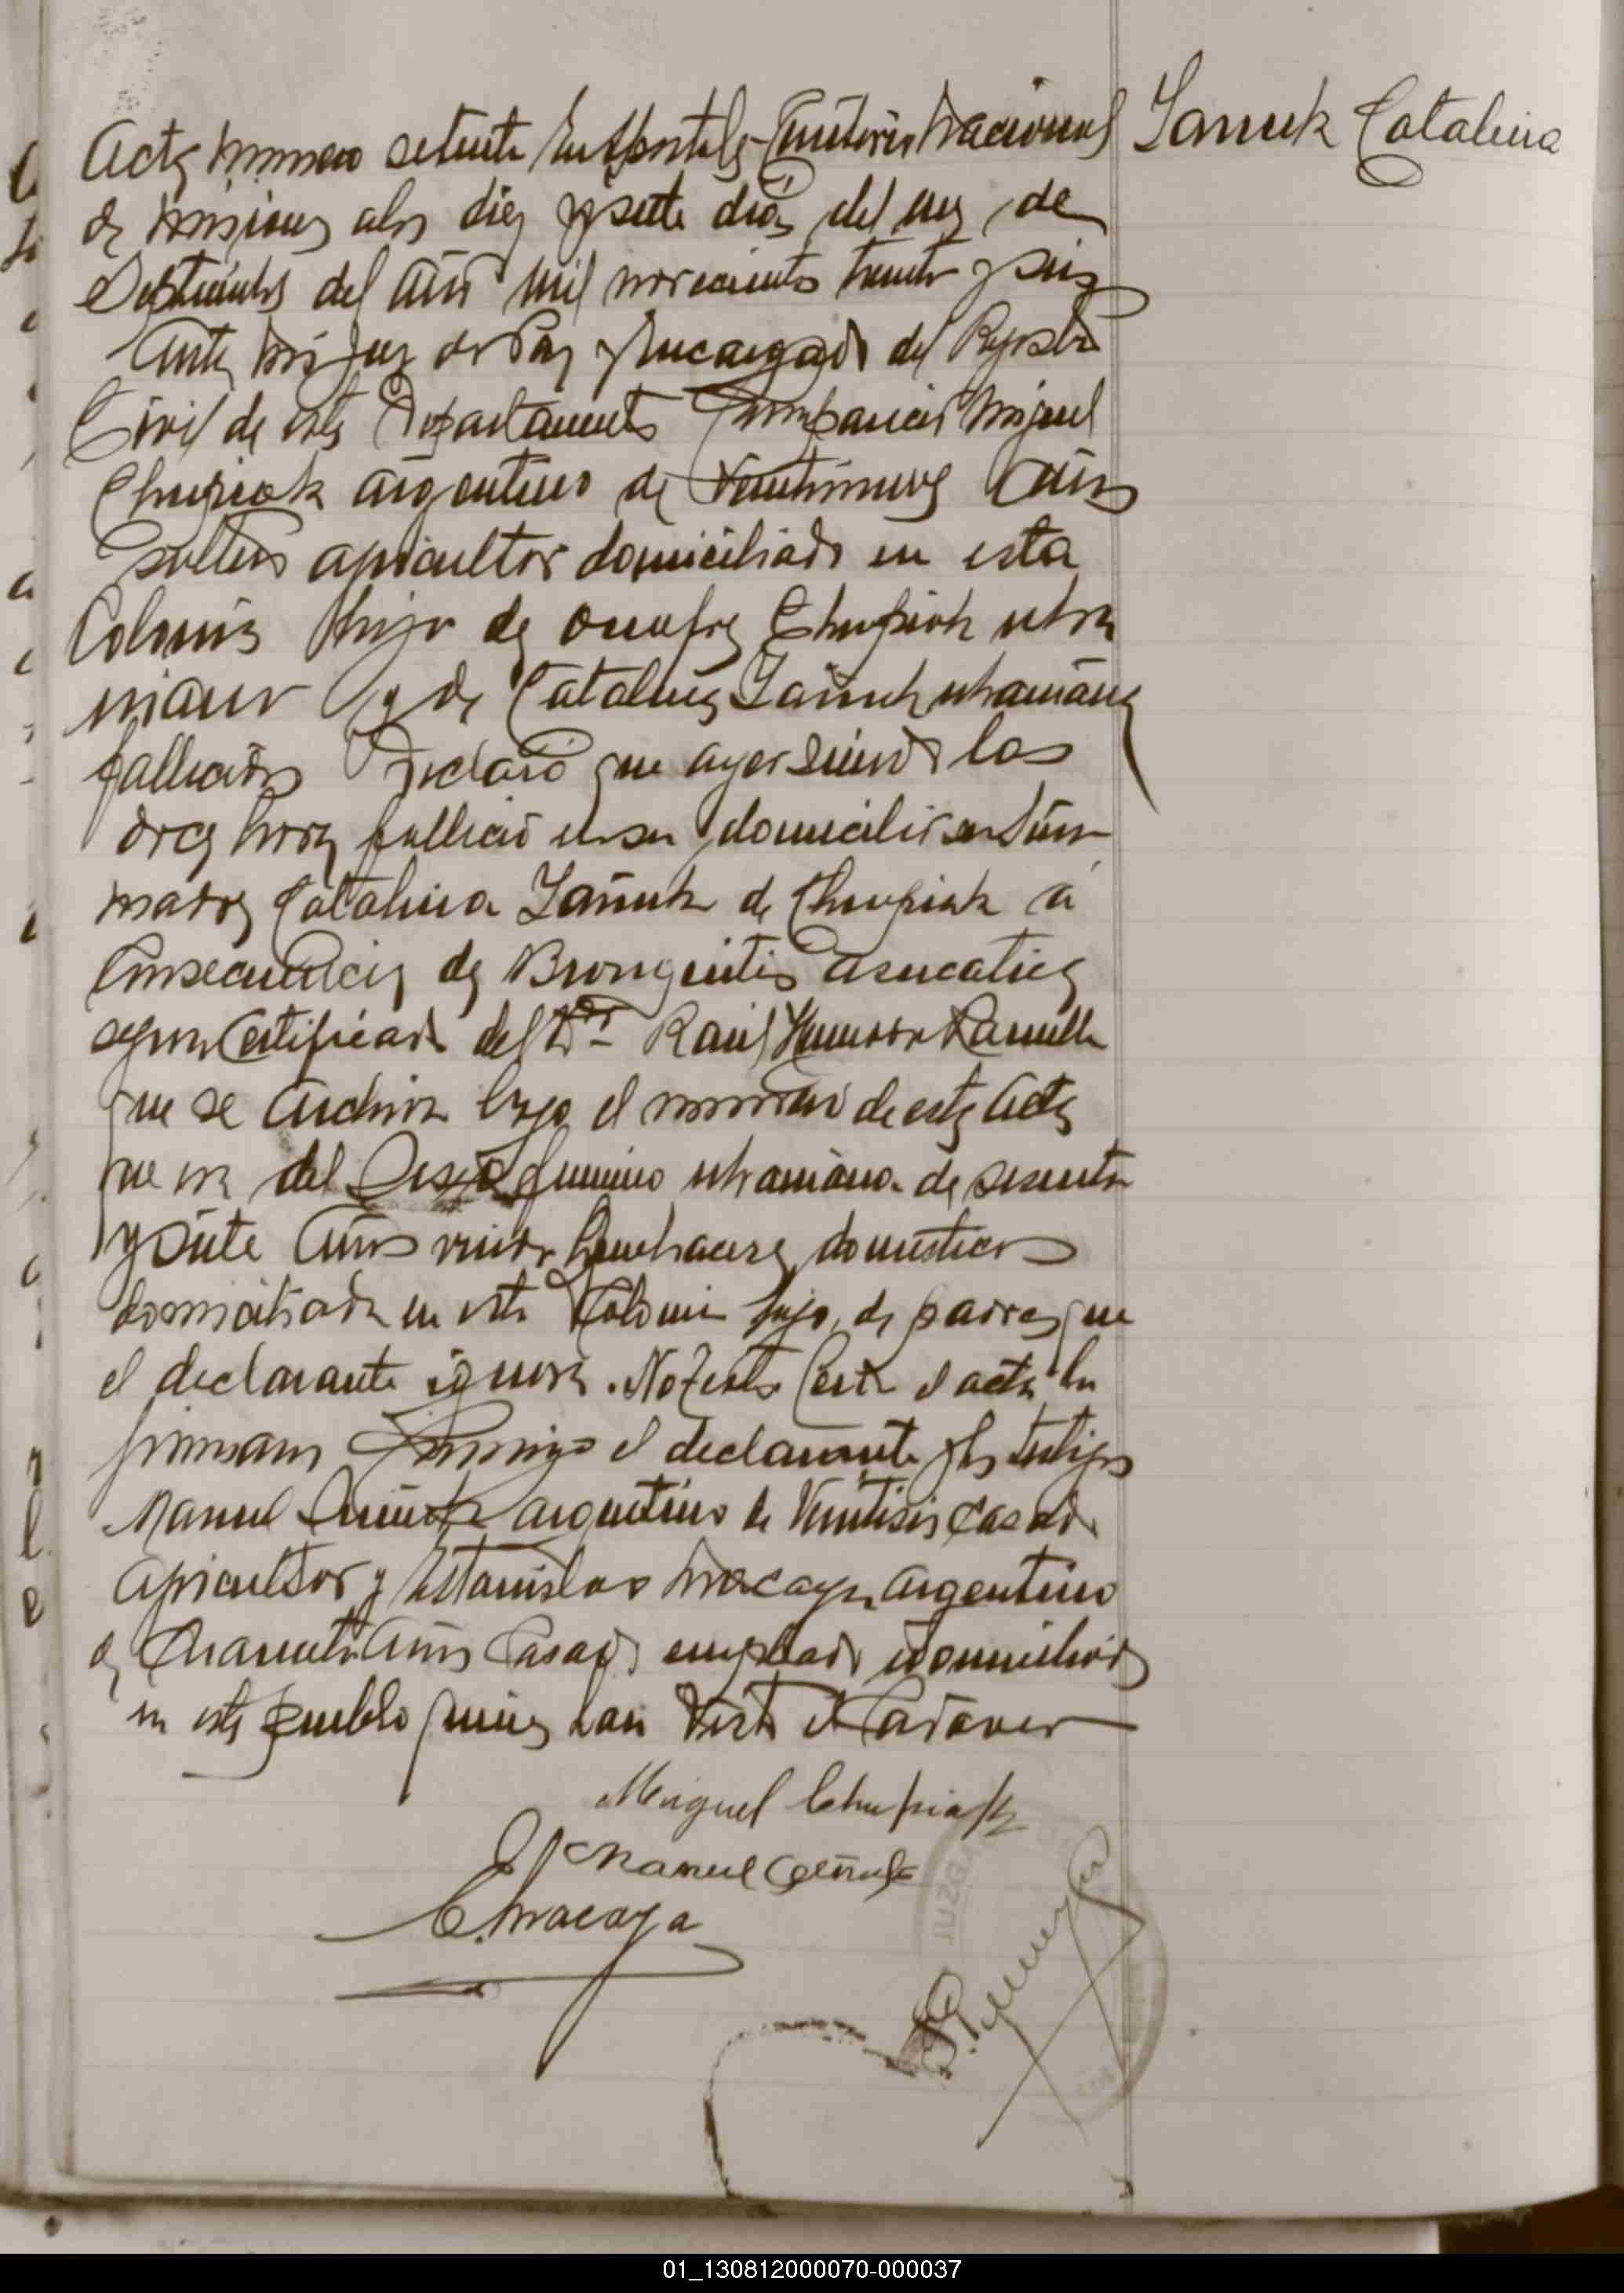 Acta numero setenta En Apostoles Territorio Nacional
de Misiones a los diez y siete dias del mes de
Septiembre del año mil novecientos treinta y seis
Ante mi Juez de Paz y Encargado del Registro
Civil de este Departamento Comparecio Miguel
Chupiak argentino de años
soltero agricultor domiciliado en esta
Colonia hijo de Onofre Chupiak ukra
niano y de Catalina Ianuk ukraniana
fallecidos Declaró que ayer siendo las
horas fallecio en su domicilio su
madre Catalina Iañuk de Chupiak a
Consecuencia de Bronquitis
segun Certificado del Dr Raul
que se archiva bajo el numero de esta Acta
que era del Sexo femenino ukraniana de sesenta
y siete Años viuda Quehaceres domesticos
domiciliada en esta Colonia hija de padres que
el declarante ignora. No Testo Leida el acta la
firmaron Conmigo el declarante y los testigos
Manuel argentino de Veintiseis casado
agricultor y Estanislao argentino
de Cuarenta Años Casado empleado domiciliados
en este pueblo quienes han Visto el Cadaver
Miguel Chupiak
Manuel
E.
Ianuk Catalina
01_130812000070-000037